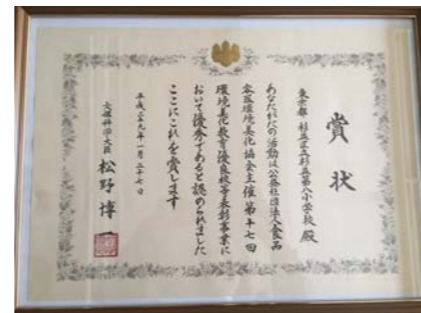 賞状
東京都 杉並区立杉並第八小学校 殿
あなたがたの活動は公益社団法人食品
容器環境美化協会主催第十七回
環境美化教育優良校等表彰事業に
おいて優秀であると認められました
ここにこれを賞します
平成二十九年一月二十七日
文部科学大臣 松野博一